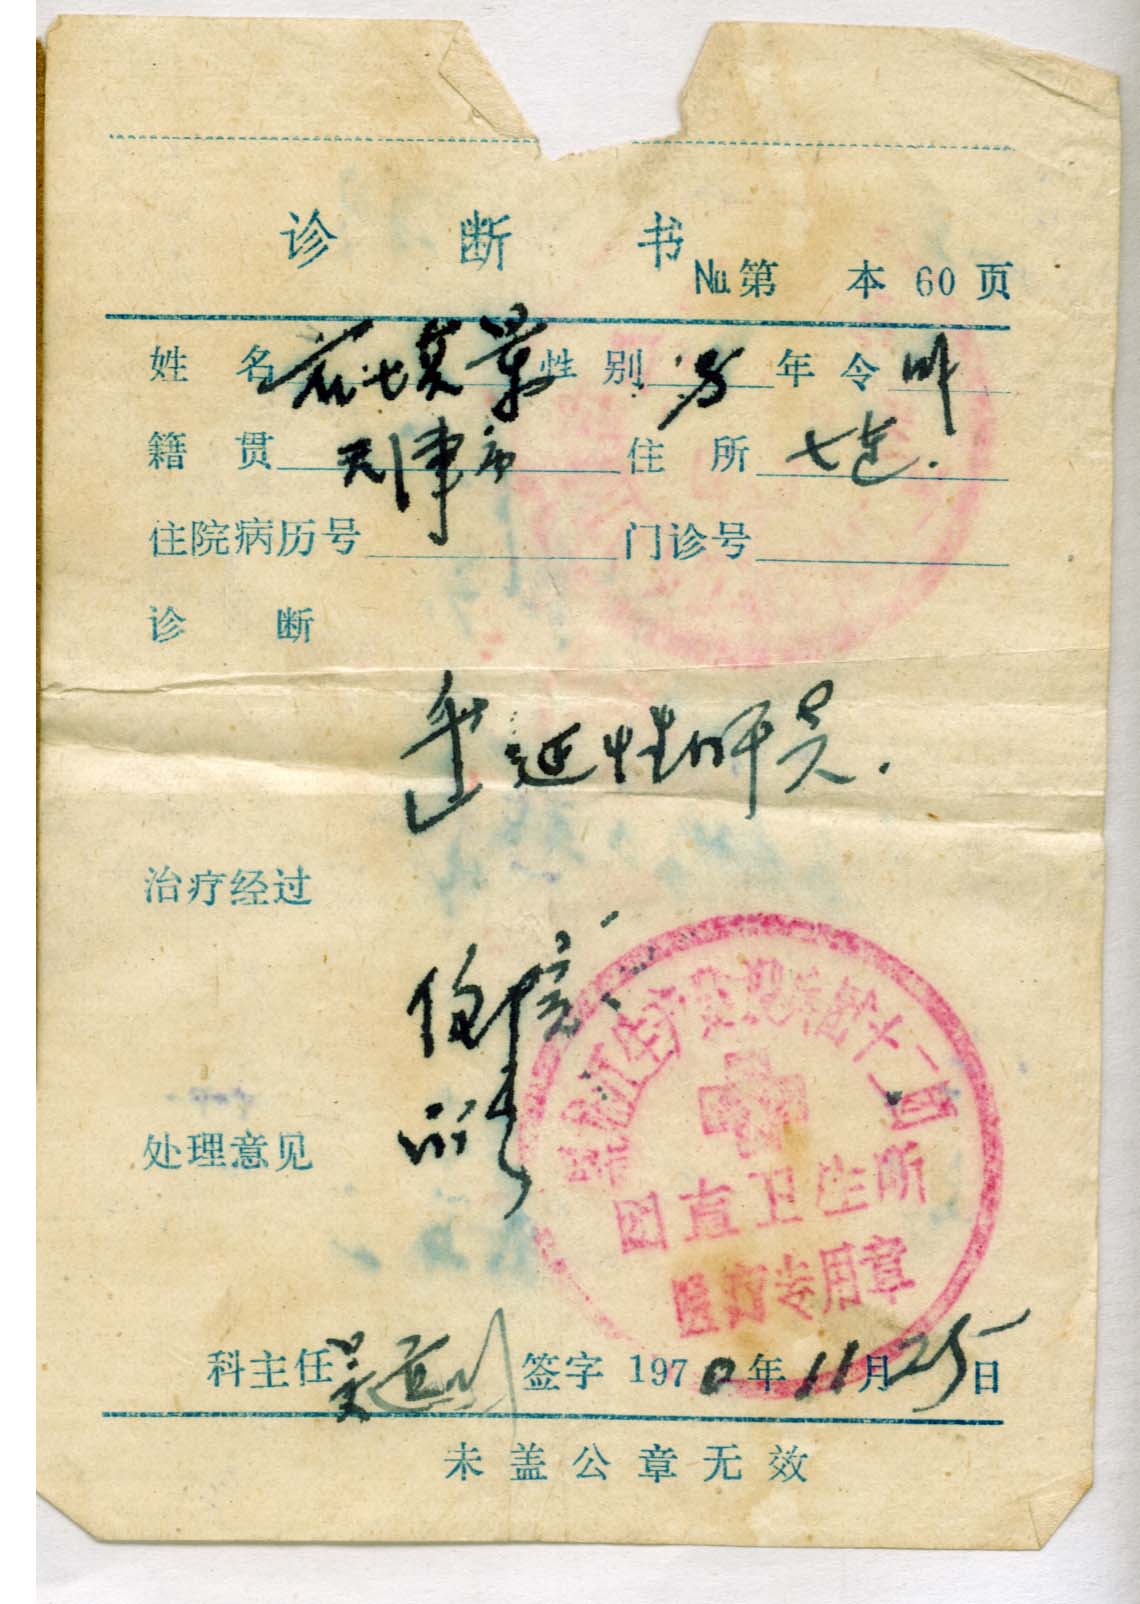 诊断书
No.第 本 60 页
姓 名 性 别 男 年 令
籍 贯 天津市 住 所 七连.
住院病历号 门诊号
诊 断
迁延性肝炎.
治疗经过
住院
处理意见
生产建设兵团十二团
团直卫生所
医疗专用章
科主任 吴 签字 1970年11月25日
未盖公章无效